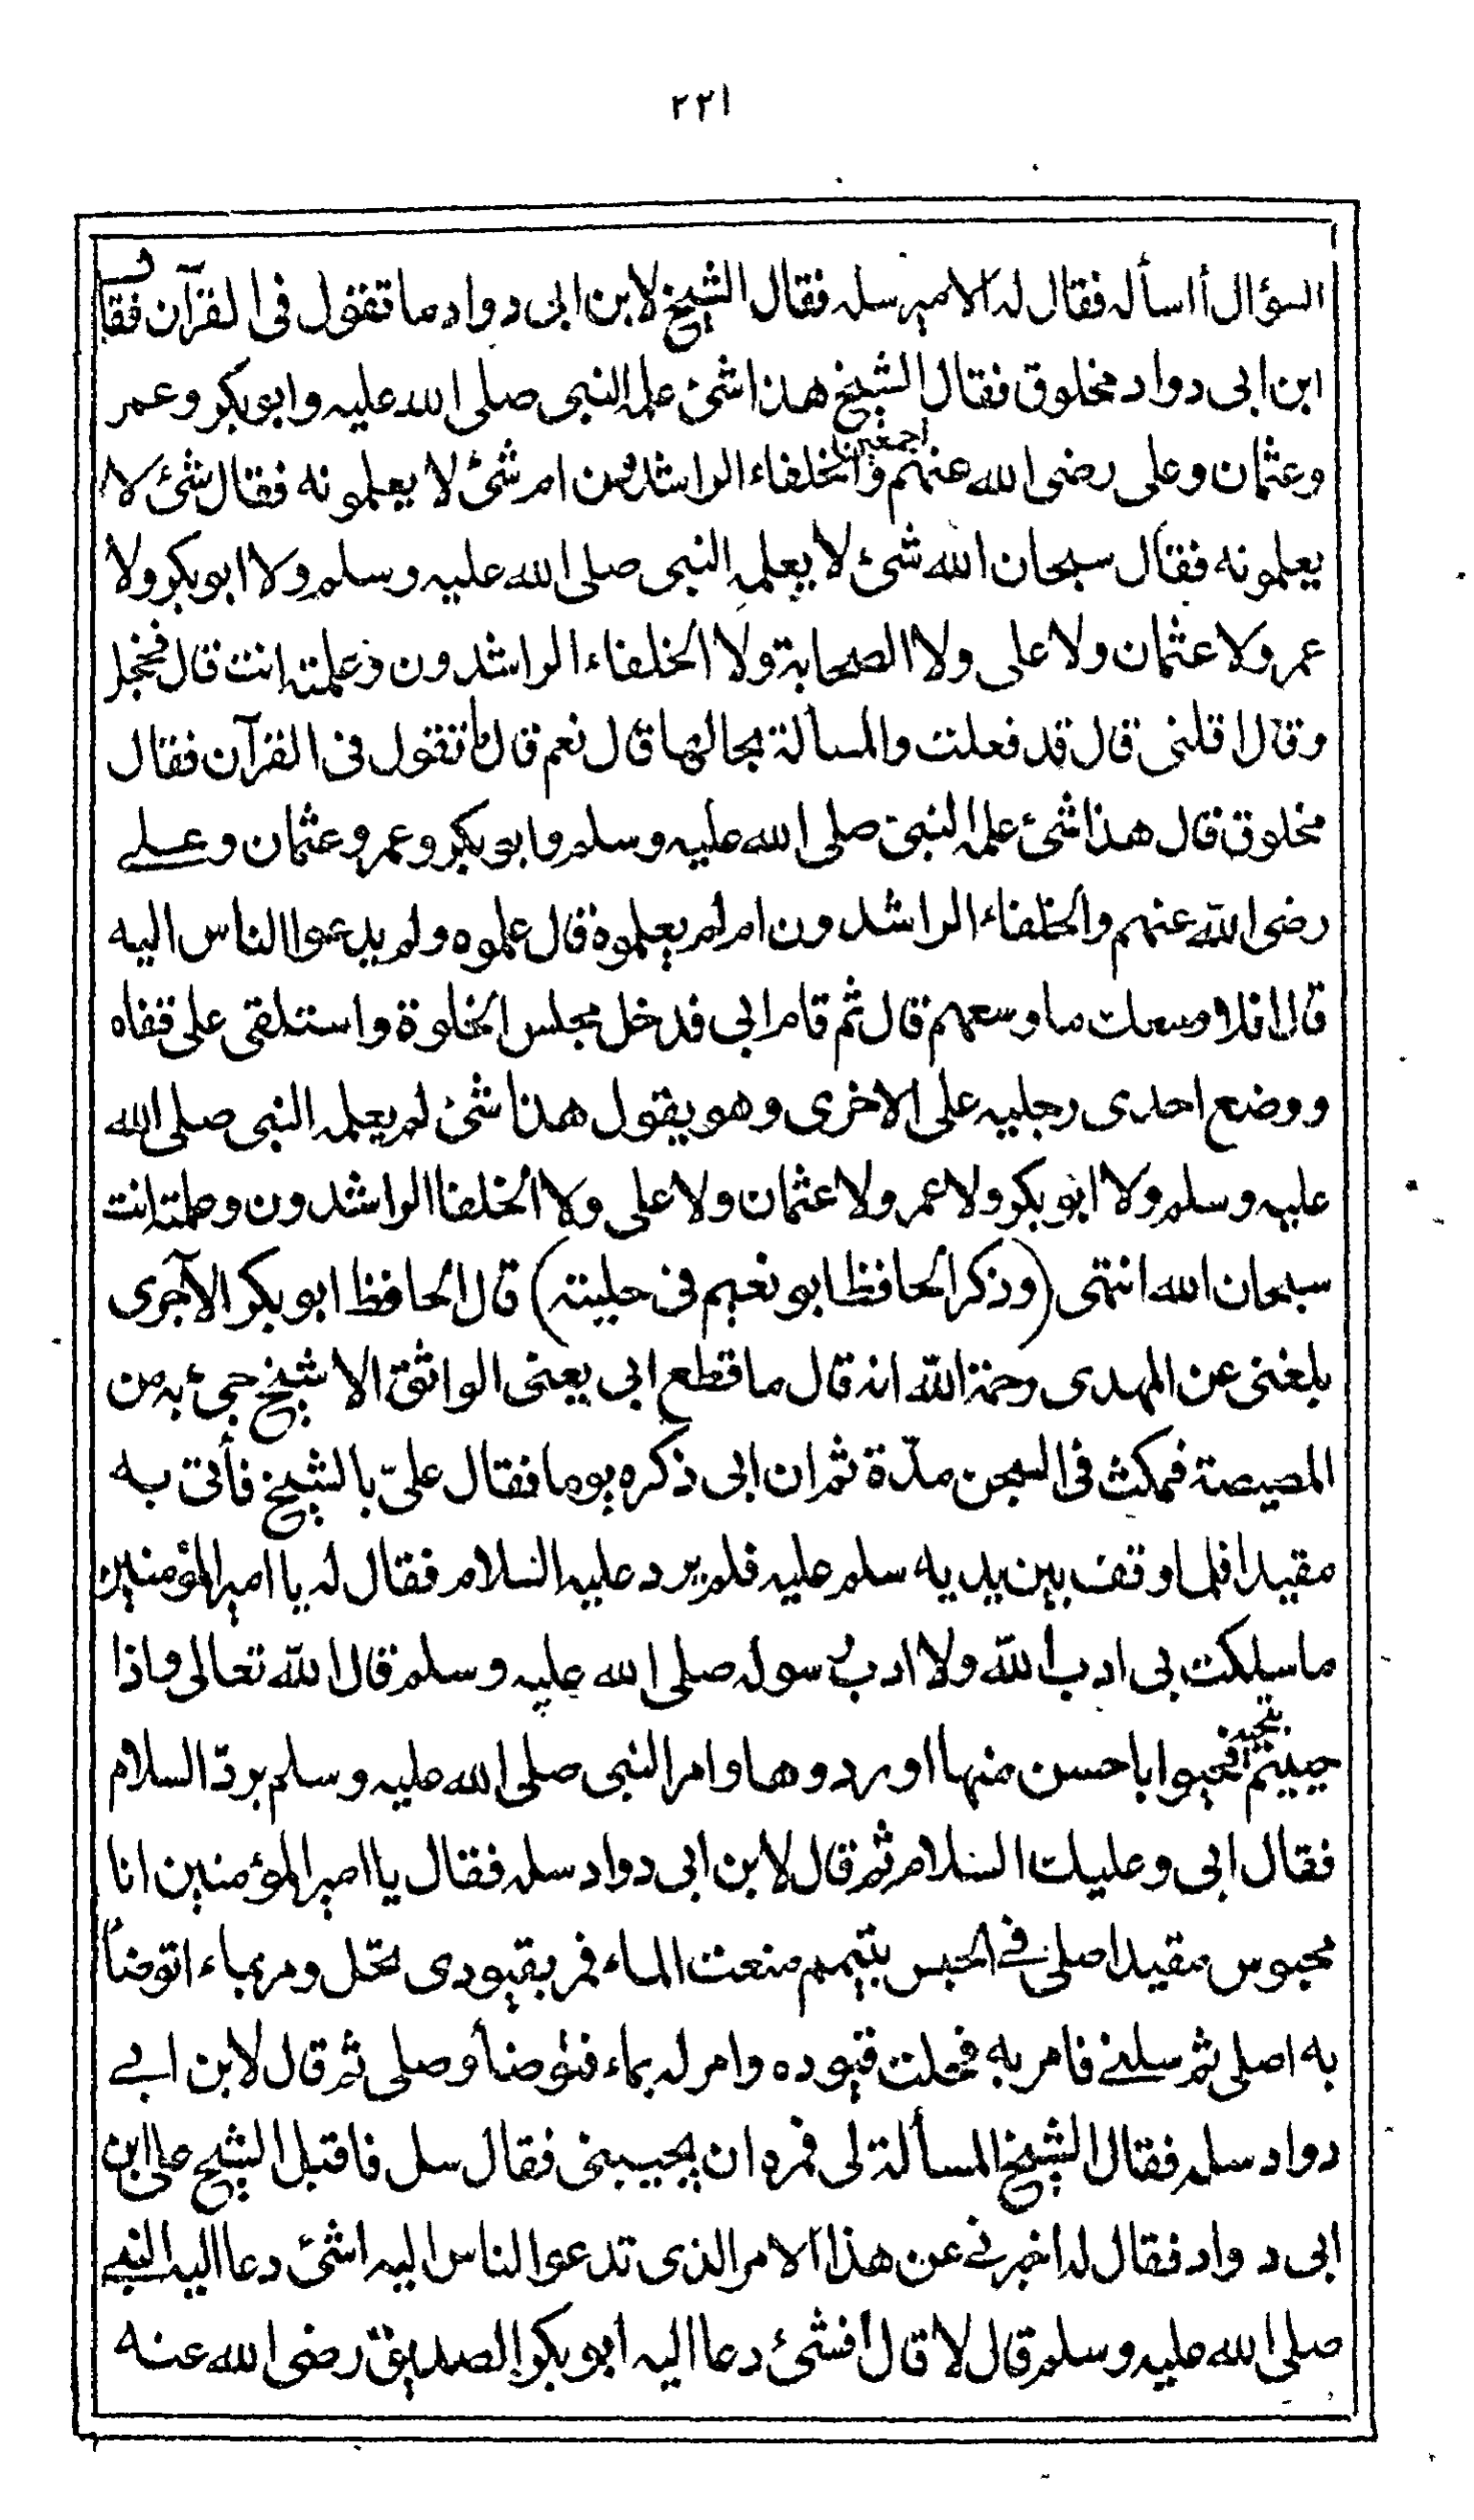 ٢٢١
السؤال أاسأله فقال له الامير سله فقال الشيخ لابن ابى دواد ما تقول فى القرآن فقال
ابن ابى دواد مخلوق فقال الشيخ هذا شئ علمه النبى صلى الله عليه وابو بكر وعمر
وعثمان وعلى رضى الله عنهم اجمعين والخلفاء الراشدون ام شئ لا يعلمونه فقال شئ لا
يعلمونه فقال سبحان الله شئ لا يعلمه النبى صلى الله عليه وسلم ولا ابو بكر ولا
عمر ولا عثمان ولا على ولا الصحابة ولا الخلفاء الراشدون وعلمته انت قال فخجل
وقال اقلنى قال قد فعلت والمسألة بحالها قال نعم قال ما تقول فى القرآن فقال
مخلوق قال هذا شئ علمه النبى صلى الله عليه وسلم وابو بكر وعمر وعثمان وعلى
رضى الله عنهم والخلفاء الراشدون ام لم يعلموه قال علموه ولم يدعوا الناس اليه
قال افلا وسعك ما وسعهم قال ثم قام ابى فدخل مجلس الخلوة واستلقى على قفاه
ووضع احدى رجليه على الاخرى وهو يقول هذا شئ لم يعلمه النبى صلى الله
عليه وسلم ولا ابو بكر ولا عمر ولا عثمان ولا على ولا الخلفا الراشدون وعلمته انت
سبحان الله انتهى (وذكر الحافظ ابو نعيم فى حليته) قال الحافظ ابو بكر الآجرى
بلغنى عن المهدى رحمة الله انه قال ما قطع ابى يعنى الواثق الا شيخ جئ به من
المصيصة فمكث فى السجن مدّة ثم ان ابى ذكره يوما فقال علىّ بالشيخ فأتى به
مقيدا فلما وقف بين يديه سلم عليه فلم يرد عليه السلام فقال له يا امير المؤمنين
ما سلكت بى ادب الله ولا ادب رسوله صلى الله عليه وسلم قال الله تعالى واذا
حييتم بتحية فحيوا باحسن منها او ردوها وامر النبى صلى الله عليه وسلم بردّ السلام
فقال ابى وعليك السلام ثم قال لابن ابى دواد سله فقال يا امير المؤمنين انا
محبوس مقيد اصلى فى الحبس بتيمم منعت الماء فمر بقيودى تحل ومر بماء اتوضأ
به اصلى ثم سلنى فامر به فحلت قيوده وامر له بماء فتوضأ وصلى ثم قال لابن ابى
دواد سله فقال الشيخ المسألة لى فمره ان يجيبنى فقال سل فاقبل الشيخ على ابن
ابى دواد فقال له اخبرنى عن هذا الامر الذى تدعوا الناس اليه اشئ دعا اليه النبى
صلى الله عليه وسلم قال لا قال افشئ دعا اليه ابو بكر الصديق رضى الله عنه